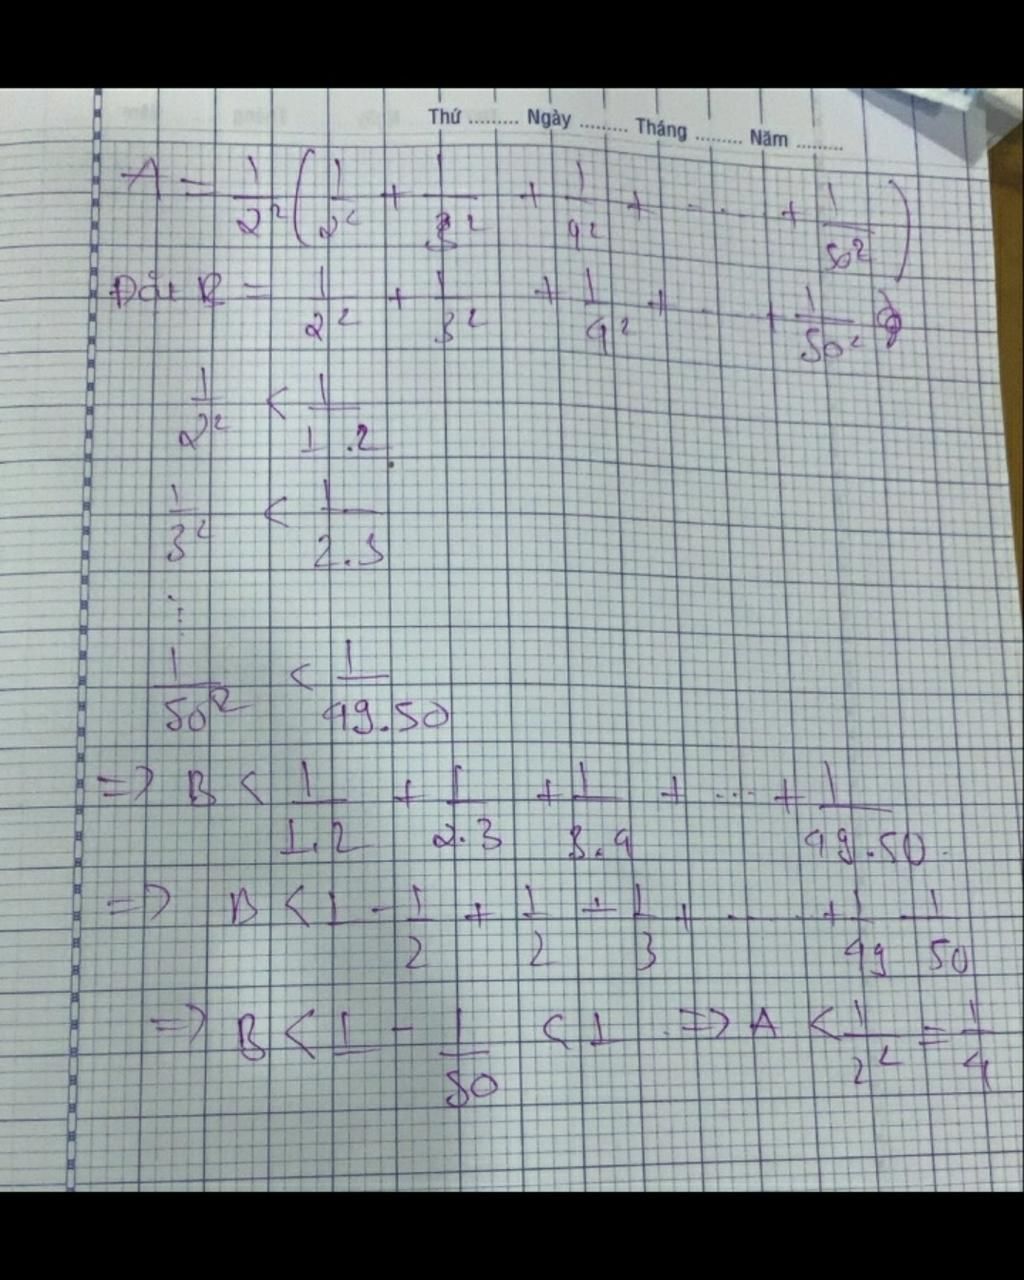 Thứ ......... Ngày ......... Tháng ......... Năm .........
A = 1/2² (1/2² + 1/3² + 1/4² + ... + 1/50²)
Đặt B = 1/2² + 1/3² + 1/4² + ... + 1/50²
1/2² < 1/1.2
1/3² < 1/2.3
⋮
1/50² < 1/49.50
=> B < 1/1.2 + 1/2.3 + 1/3.4 + ... + 1/49.50
=> B < 1 - 1/2 + 1/2 - 1/3 + ... + 1/49 - 1/50
=> B < 1 - 1/50 < 1 => A < 1/2² = 1/4